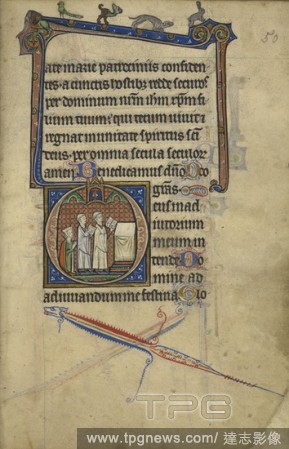 50
ate marie patrocinus confiden
tes · a cunctis hostibꝫ redde securos
per dominum nr̄m ihm xp̄m fi
lium tuum · qui tecum uiuit ⁊
regnat in unitate spiritus sc̄i
deus · per omnia secula seculoꝝ
amen Benedicamus dn̄o Deo
grās ·
eus in ad
iutorium
meum in
tende Do
mine ad
adiuuandum me festina Glo
TPG
www.tpgnews.com/ 達志影像